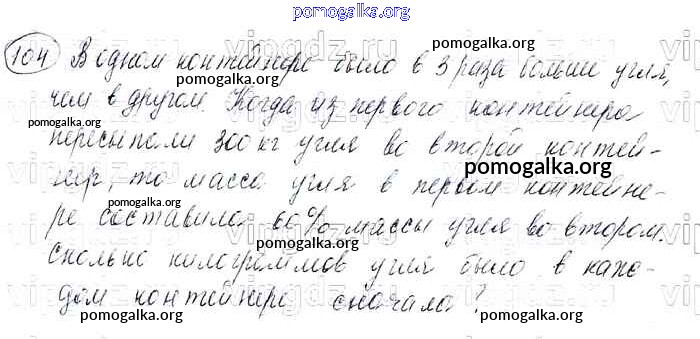 pomogalka.org
104 В одном контейнере было в 3 раза больше угля,
pomogalka.org
чем в другом. Когда из первого контейнера
pomogalka.org
пересыпали 300 кг угля во второй контей-
pomogalka.org
нер, то масса угля в первом контейне-
ре составила 60% массы угля во втором.
pomogalka.org
Сколько килограммов угля было в каж-
дом контейнере сначала?
pomogalka.org
pomogalka.org
vipgdz.ru